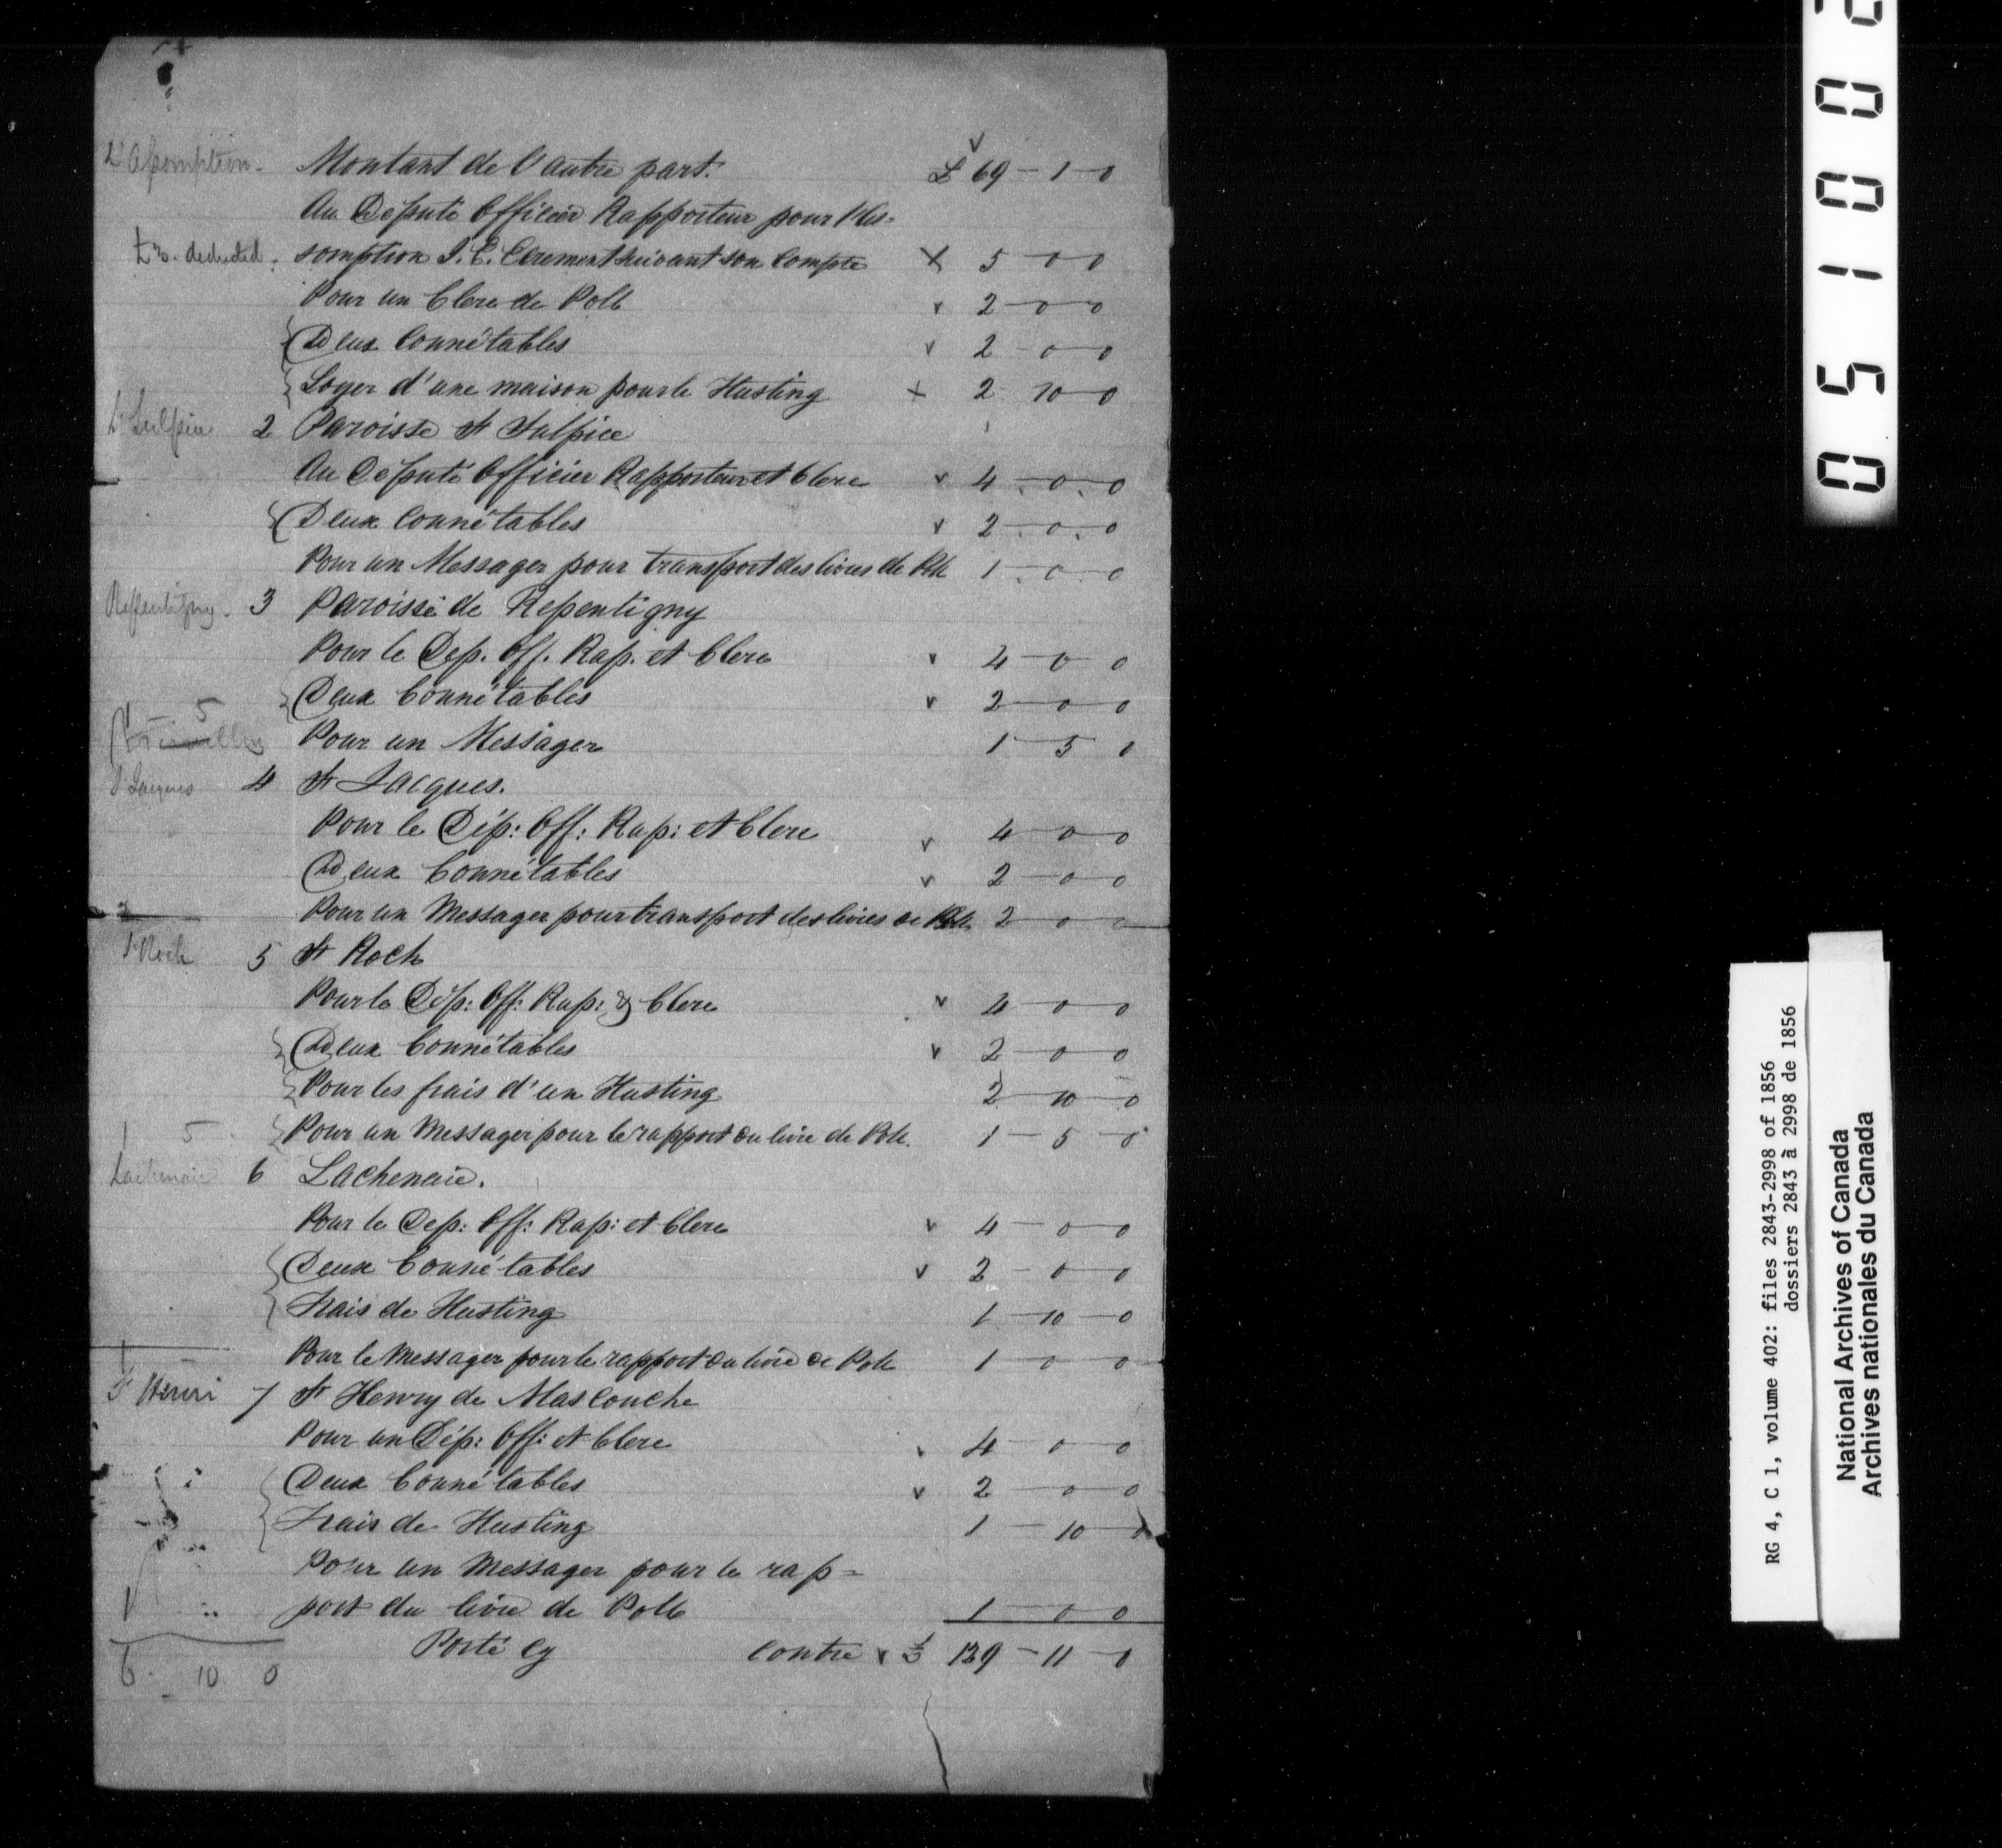 L'Assomption. Montant de l'autre part. £ 69 - 1 - 0
Au Député Officier Rapporteur pour l'As=
£3. deducted. somption J. E. Clement suivant son Compte x 5 - 0 - 0
Pour un Clerc de Poll v 2 - 0 - 0
Deux Connétables v 2 - 0 - 0
Loyer d'une maison pour le Husting x 2 10 - 0
St Sulpice 2 Paroisse St Sulpice
Au Député Officier Rapporteur et Clerc v 4 . 0 . 0
Deux Connétables v 2 . 0 . 0
Pour un Messager pour transport des livres de Poll 1 . 0 . 0
Repentigny. 3 Paroisse de Repentigny
Pour le Dep. Off. Rap. et Clerc v 4 - 0 0
Deux Connétables v 2 - 0 - 0
1 - 5
Pour un Messager 1 - 5 0
St Jacques 4 St Jacques.
Pour le Dép: Off: Rap: et Clerc v 4 - 0 - 0
Deux Connétables v 2 - 0 - 0
2 Pour un Messager pour transport des livres de Poll 2 - 0 - 0
St Roch 5 St Roch
Pour le Dép: Off: Rap: & Clerc v 4 - 0 - 0
Deux Connétables v 2 - 0 - 0
Pour les frais d'un Husting 2 - 10 - 0
1 5 Pour un Messager pour le rapport du livre de Poll. 1 - 5 - 0
Lachenaie 6 Lachenaie.
Pour le Dep: Off: Rap: et Clerc v 4 - 0 - 0
Deux Connétables v 2 - 0 - 0
Frais de Husting 1 - 10 - 0
1 Pour le Messager pour le rapport du livre de Poll 1 - 0 - 0
St Henri 7 St Henry de Mascouche
Pour un Dép: Off: et Clerc 4 - 0 - 0
Deux Connétables v 2 - 0 - 0
Frais de Husting 1 - 10 - 0
Pour un Messager pour le rap=
port du livre de Poll 1 - 0 - 0
Porté cy contre v £ 139 - 11 - 0
6 - 10 0
05 1002
RG 4, C 1, volume 402: files 2843-2998 of 1856
dossiers 2843 à 2998 de 1856
National Archives of Canada
Archives nationales du Canada